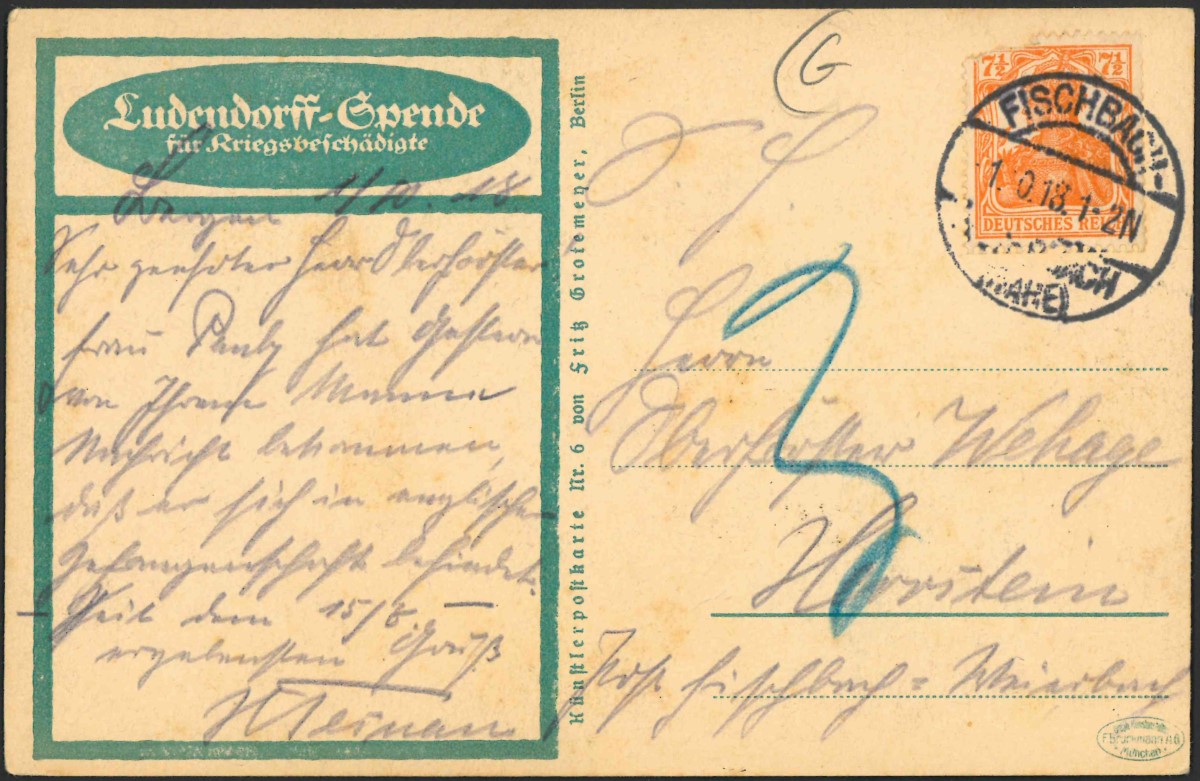 Ludendorff-Spende
für Kriegsbeschädigte
Bergen 1/10. 18
Sehr geehrter Herr Oberförster
Frau Pauly hat gestern
von Ihrem Manne
Nachricht bekommen,
daß er sich in englischer
Gefangenschaft befindet.
Seit dem 15/8
ergebensten Gruß
Künstlerpostkarte Nr. 6 von Fritz Grotemeyer, Berlin
G
7½ 7½
DEUTSCHES REICH
FISCHBACH-
1.10.18. 1-2N
(NAHE)
3
Herrn
Oberförster Wehage
Herrstein
Post Fischbach = Weierbach
F. Bruckmann A G
München